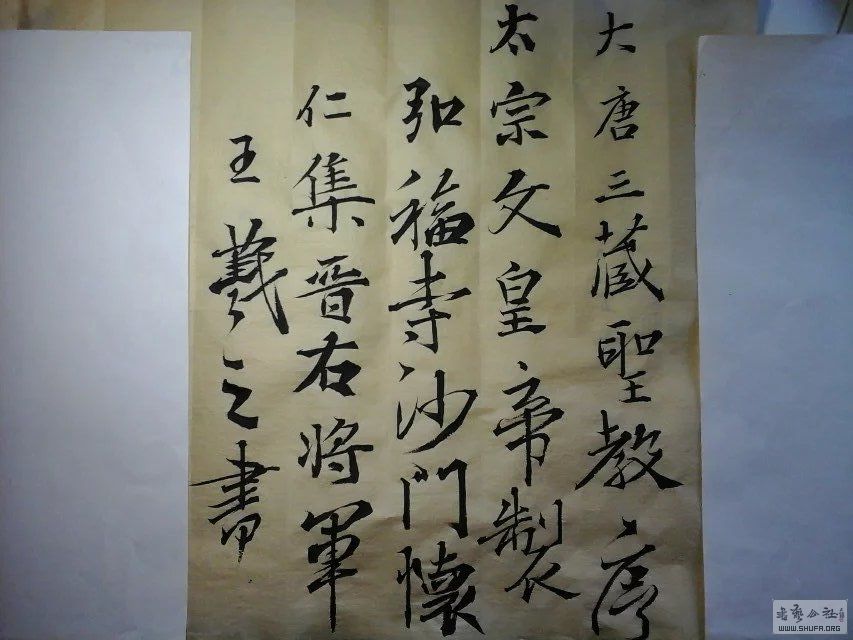 大唐三藏聖教序
太宗文皇帝製
弘福寺沙門懷
仁集晋右将軍
王羲之書
WWW.SHUFA.ORG